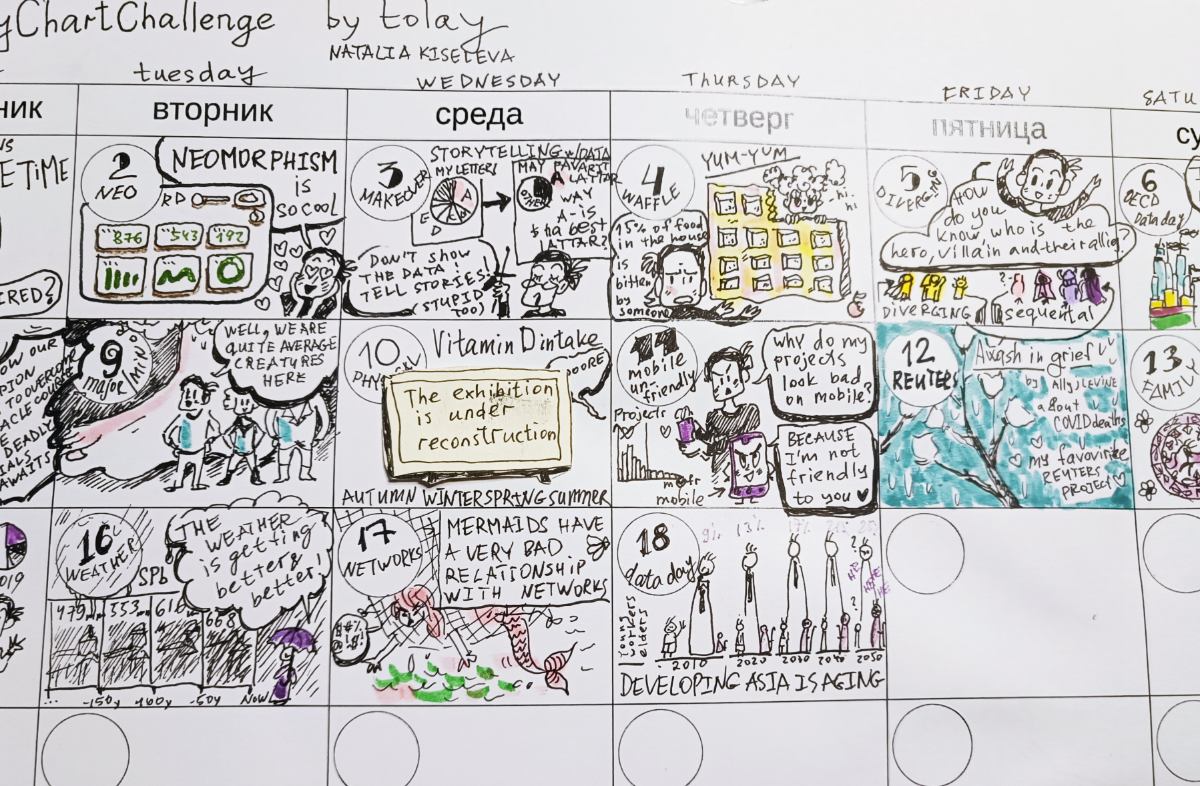 yChartChallenge by tolay
NATALIA KISELEVA
tuesday
WEDNESDAY
THURSDAY
FRIDAY
SATU
ник
вторник
среда
четверг
пятница
су
E TIME
IRED?
2
NEO
NEOMORPHISM
is
SO COOL
876 543 192
3
MAKEOVER
STORYTELLING w/DATA
MY LETTERS
A
MAY FAVARIT
LATTAR
WAY
A- is
ta best
LATTAR?
DON'T SHOW
THE DATA!
TELL STORIES!
(STUPID
TOO)
4
WAFFLE
YUM-YUM
15% of food
in the house
is
bitten
by
someone
hi-
hi
5
DIVERGING
HOW
do you
know who is the
hero, villain and their allies?
DIVERGING
sequental
6
OECD
Data day
OW OUR
PION
TO OVERCOME
ACLE COURSE
DEADLY
AWAITS
9
major
WELL, WE ARE
QUITE AVERAGE
CREATURES
HERE
10
Vitamin D intake
The exhibition
is under
reconstruction
AUTUMN WINTER SPRING SUMMER
11
mobile
un-
friendly
Projects
mobile
why do my
projects
look bad
on mobile?
BECAUSE
I'm not
friendly
to you ♥
12
REUTERS
in grief
by Ally J LEVINE
about
COVID deaths
my favourite
REUTERS
PROJECT
13
2019
16
WEATHER
SPb
THE
WEATHER
is getting
better &
better!
479 553 616
668
-150y -100y -50y Now
17
NETWORKS
MERMAIDS HAVE
A VERY BAD
RELATIONSHIP
WITH NETWORKS
18
data day
9% 13% 17%
young
workers
elders
2010 2020 2030 2040 2050
DEVELOPING ASIA IS AGING